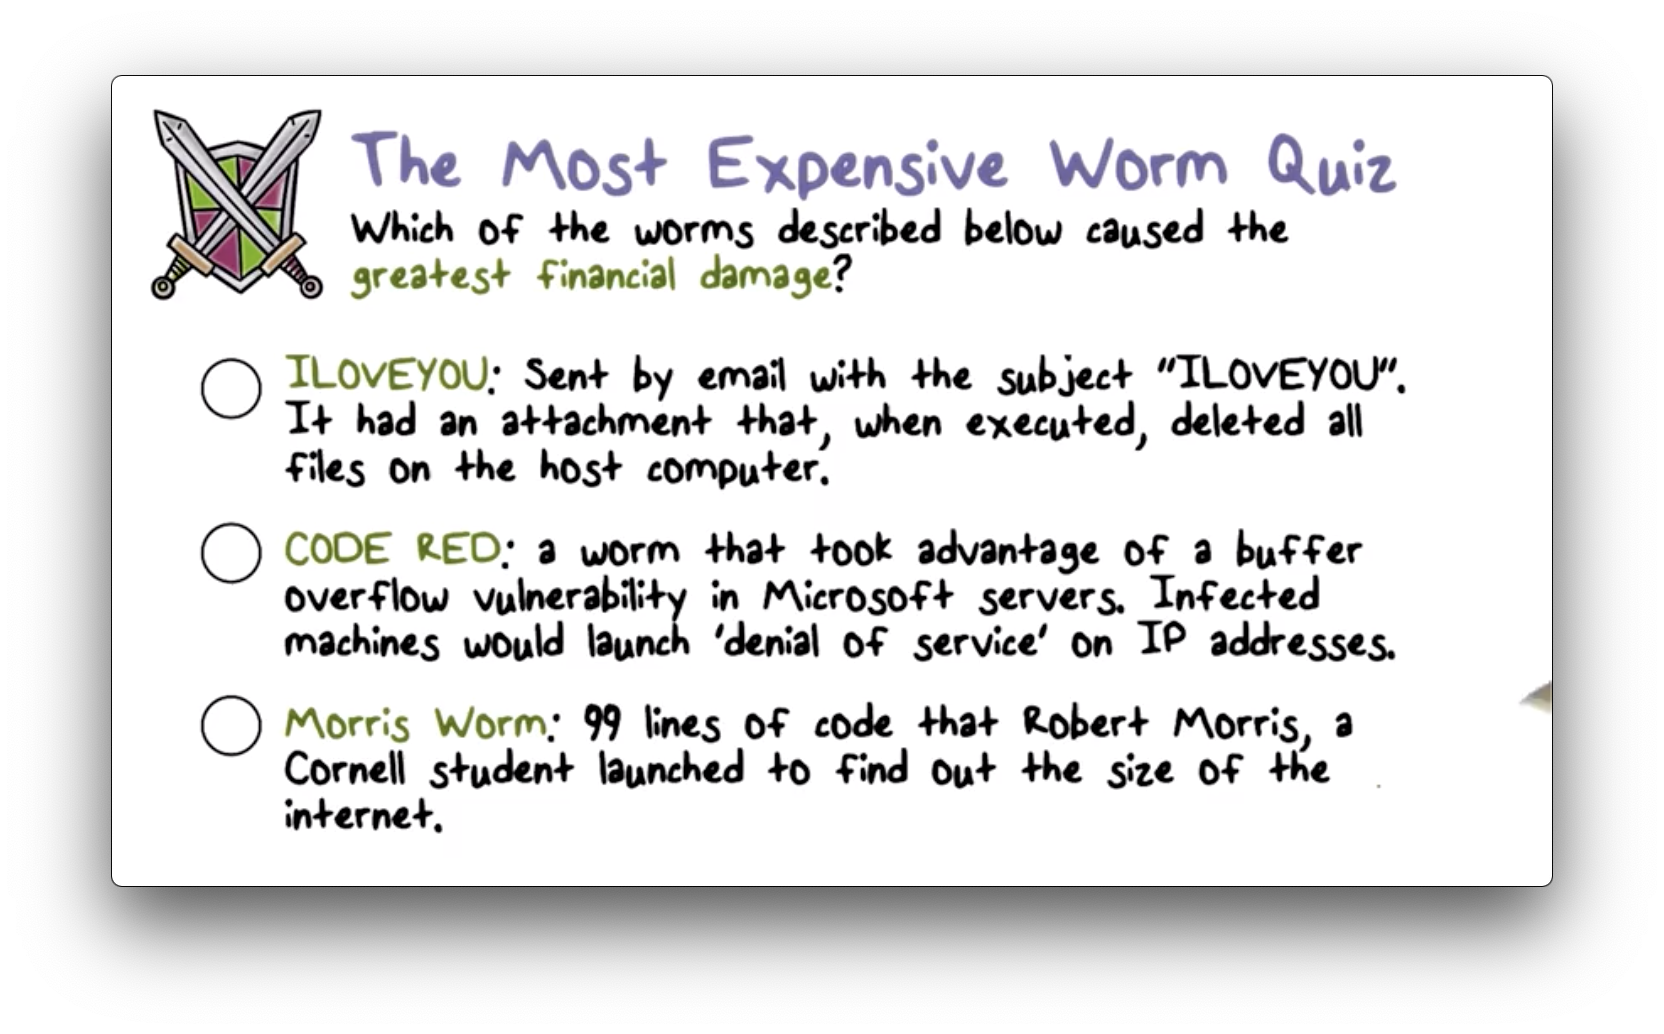 The Most Expensive Worm Quiz
Which of the worms described below caused the
greatest financial damage?
ILOVEYOU: Sent by email with the subject "ILOVEYOU".
It had an attachment that, when executed, deleted all
files on the host computer.
CODE RED: a worm that took advantage of a buffer
overflow vulnerability in Microsoft servers. Infected
machines would launch 'denial of service' on IP addresses.
Morris Worm: 99 lines of code that Robert Morris, a
Cornell student launched to find out the size of the
internet.